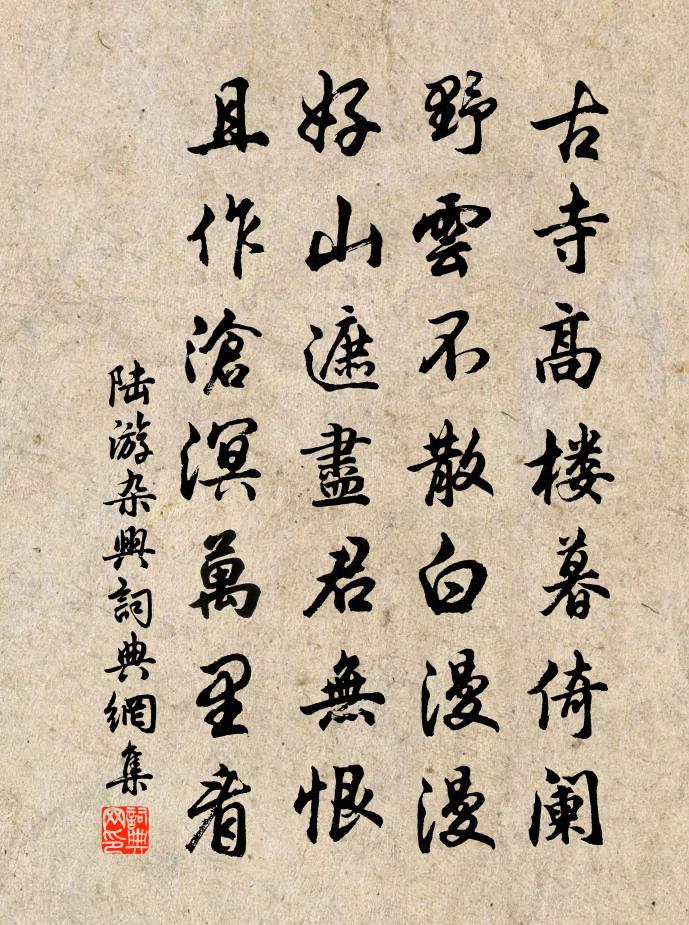 古寺高楼暮倚阑
野雲不散白漫漫
好山遮盡君無恨
且作滄溟萬里看
陆游杂興詞典網集
詞典網印